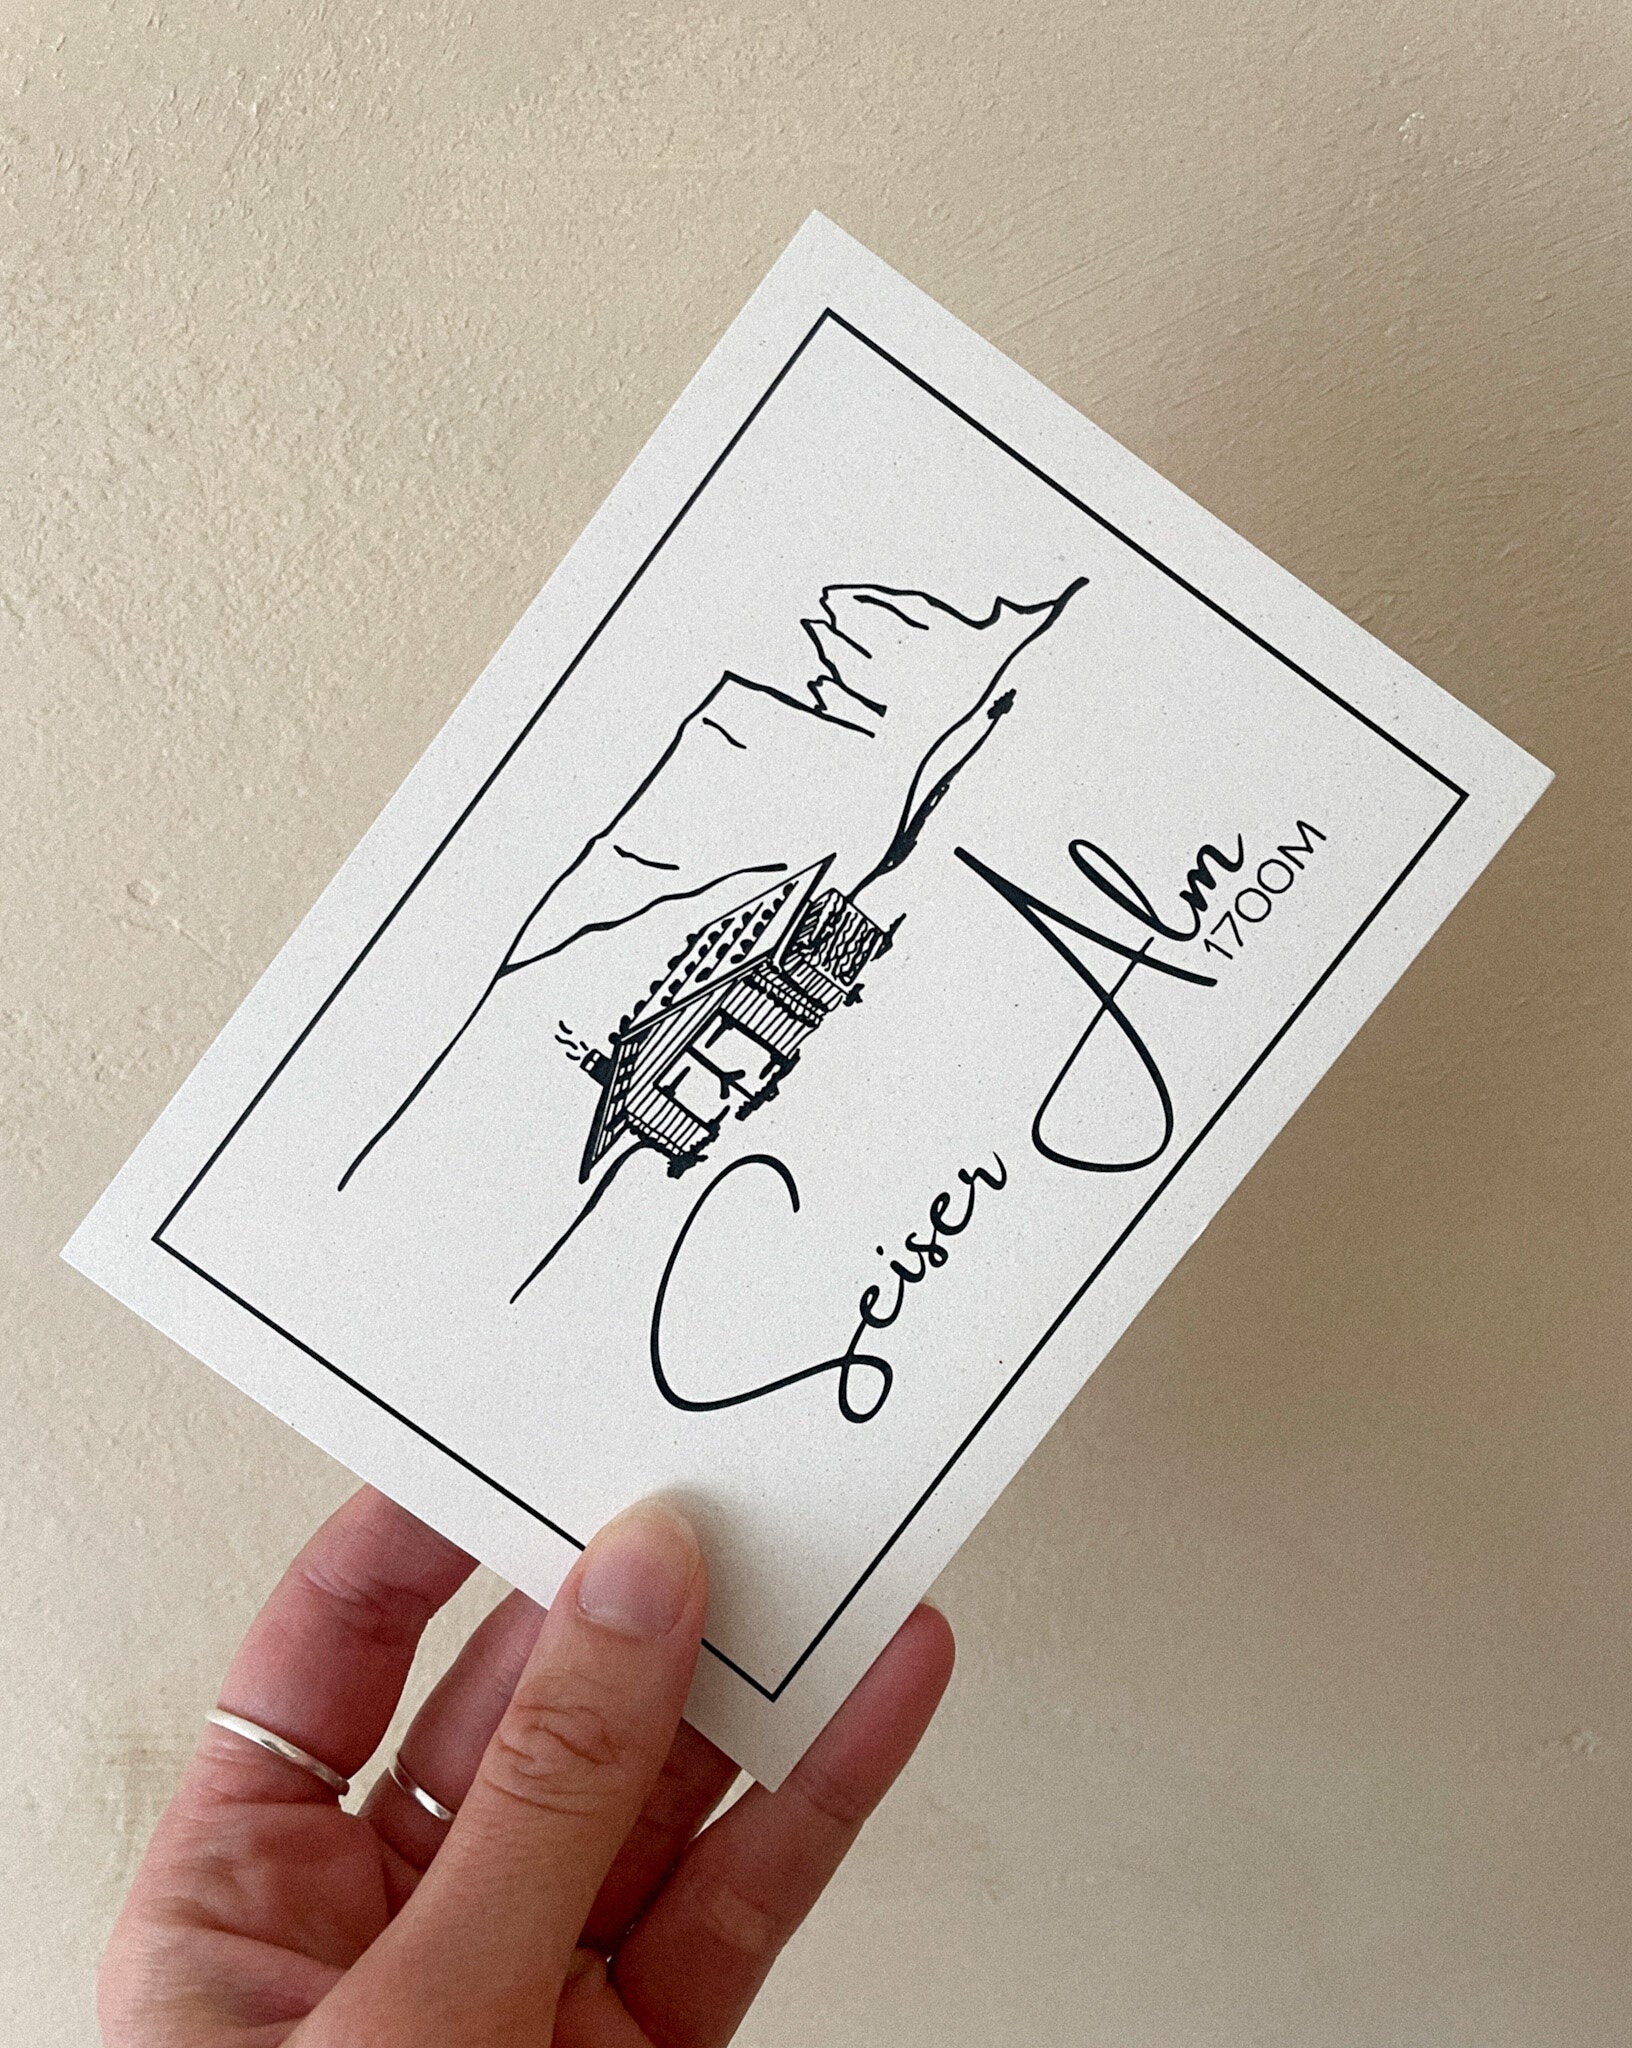 Seiser Alm
1700M